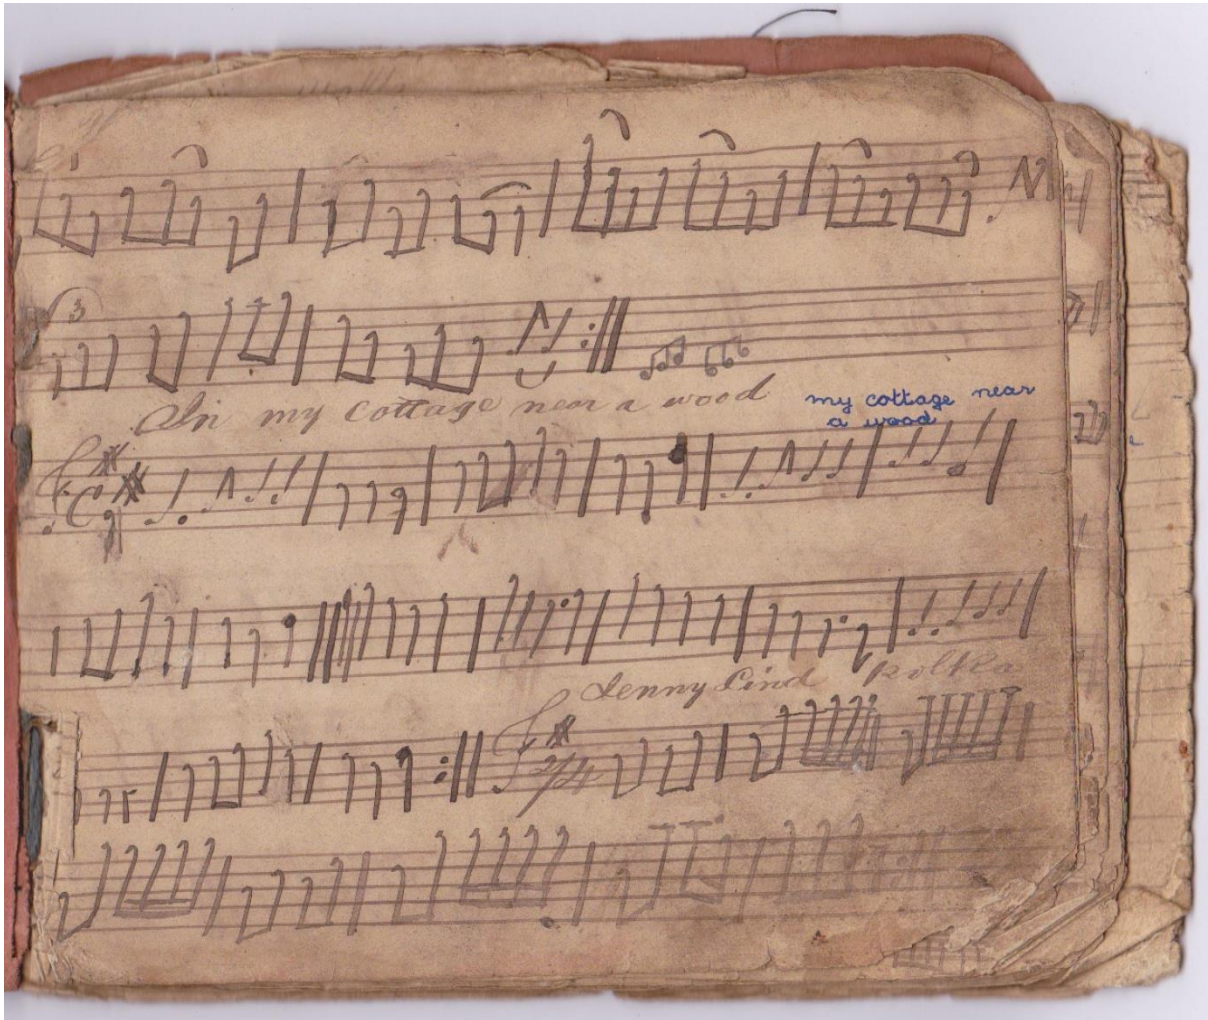 3
In my cottage near a wood
my cottage near
a wood
C
Jenny Lind polka
2/4